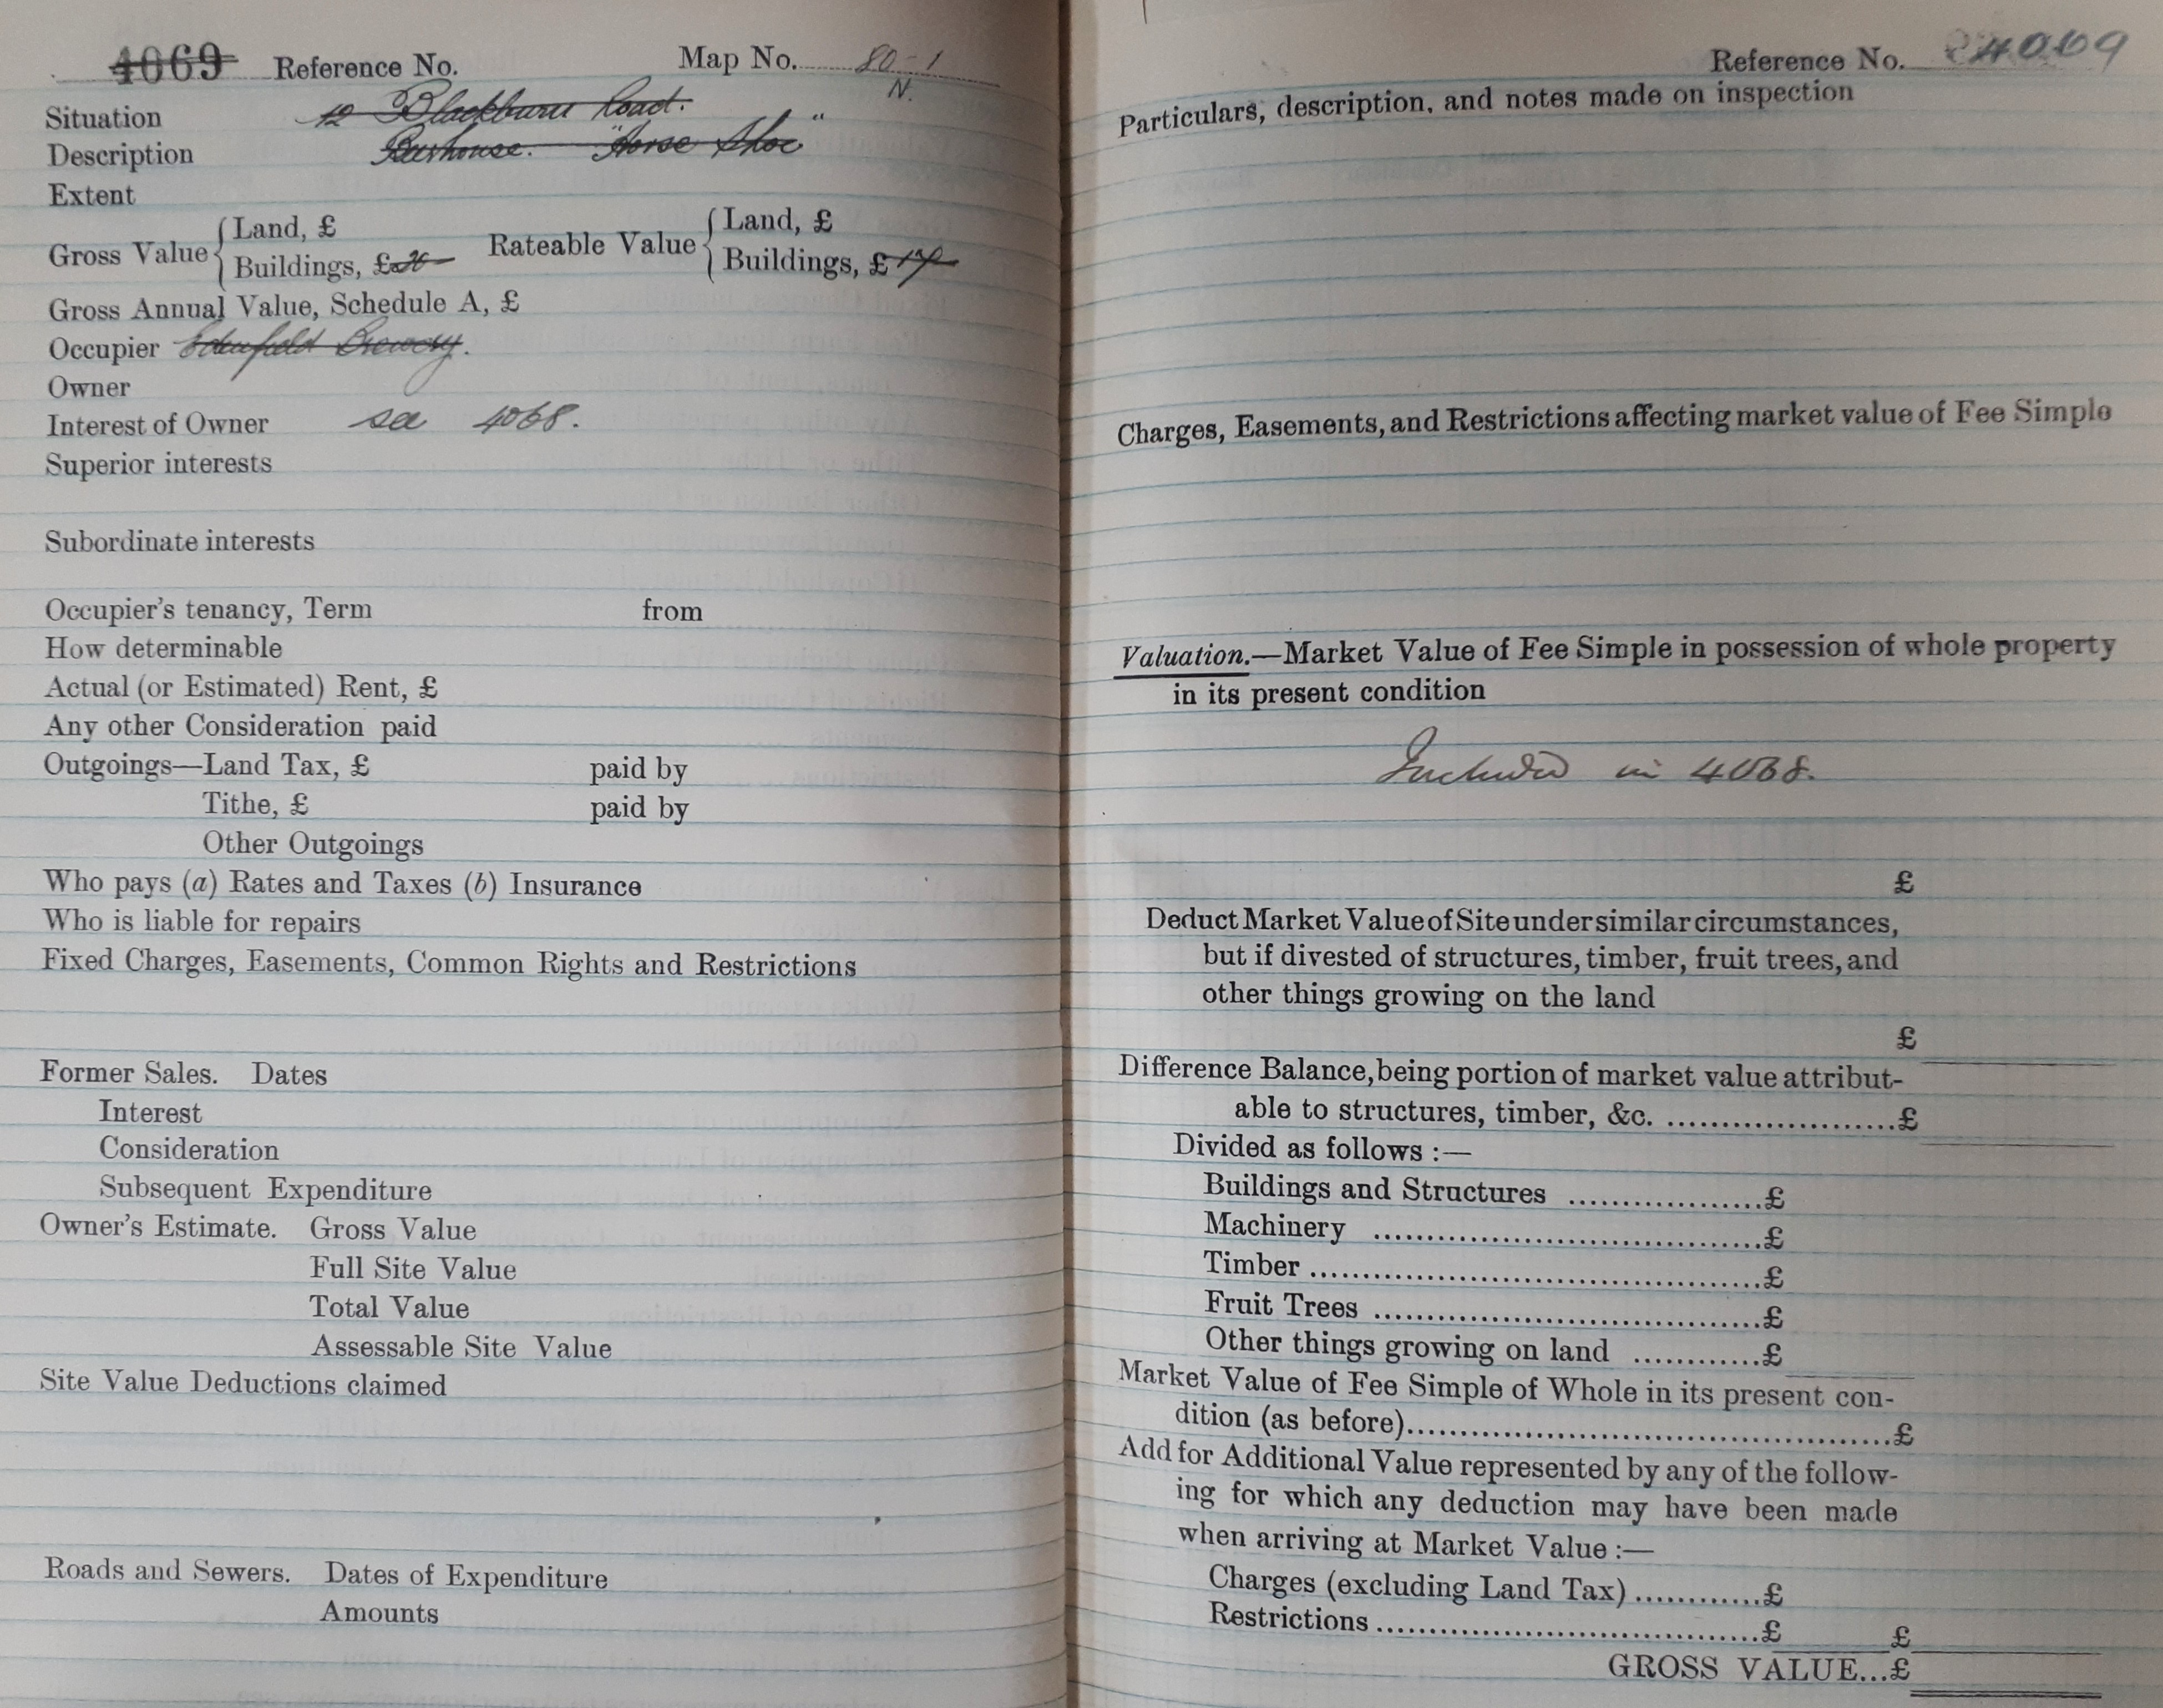 4069 Reference No. Map No. 80-1
N.
Situation 12 Blackburn Road.
Description Beerhouse. "Horse Shoe"
Extent
Gross Value { Land, £ Rateable Value { Land, £
Buildings, £ Buildings, £
Gross Annual Value, Schedule A, £
Occupier Edenfield Brewery.
Owner
Interest of Owner see 4068.
Superior interests
Subordinate interests
Occupier's tenancy, Term from
How determinable
Actual (or Estimated) Rent, £
Any other Consideration paid
Outgoings—Land Tax, £ paid by
Tithe, £ paid by
Other Outgoings
Who pays (a) Rates and Taxes (b) Insurance
Who is liable for repairs
Fixed Charges, Easements, Common Rights and Restrictions
Former Sales. Dates
Interest
Consideration
Subsequent Expenditure
Owner's Estimate. Gross Value
Full Site Value
Total Value
Assessable Site Value
Site Value Deductions claimed
Roads and Sewers. Dates of Expenditure
Amounts
Reference No. 4069
Particulars, description, and notes made on inspection
Charges, Easements, and Restrictions affecting market value of Fee Simple
Valuation.—Market Value of Fee Simple in possession of whole property
in its present condition
Included in 4068.
£
Deduct Market Value of Site under similar circumstances,
but if divested of structures, timber, fruit trees, and
other things growing on the land
£
Difference Balance, being portion of market value attribut-
able to structures, timber, &c. ........................£
Divided as follows :—
Buildings and Structures ...................£
Machinery .......................................£
Timber .............................................£
Fruit Trees .......................................£
Other things growing on land ............£
Market Value of Fee Simple of Whole in its present con-
dition (as before)................................................£
Add for Additional Value represented by any of the follow-
ing for which any deduction may have been made
when arriving at Market Value :—
Charges (excluding Land Tax) ............£
Restrictions ......................................£ £
GROSS VALUE...£